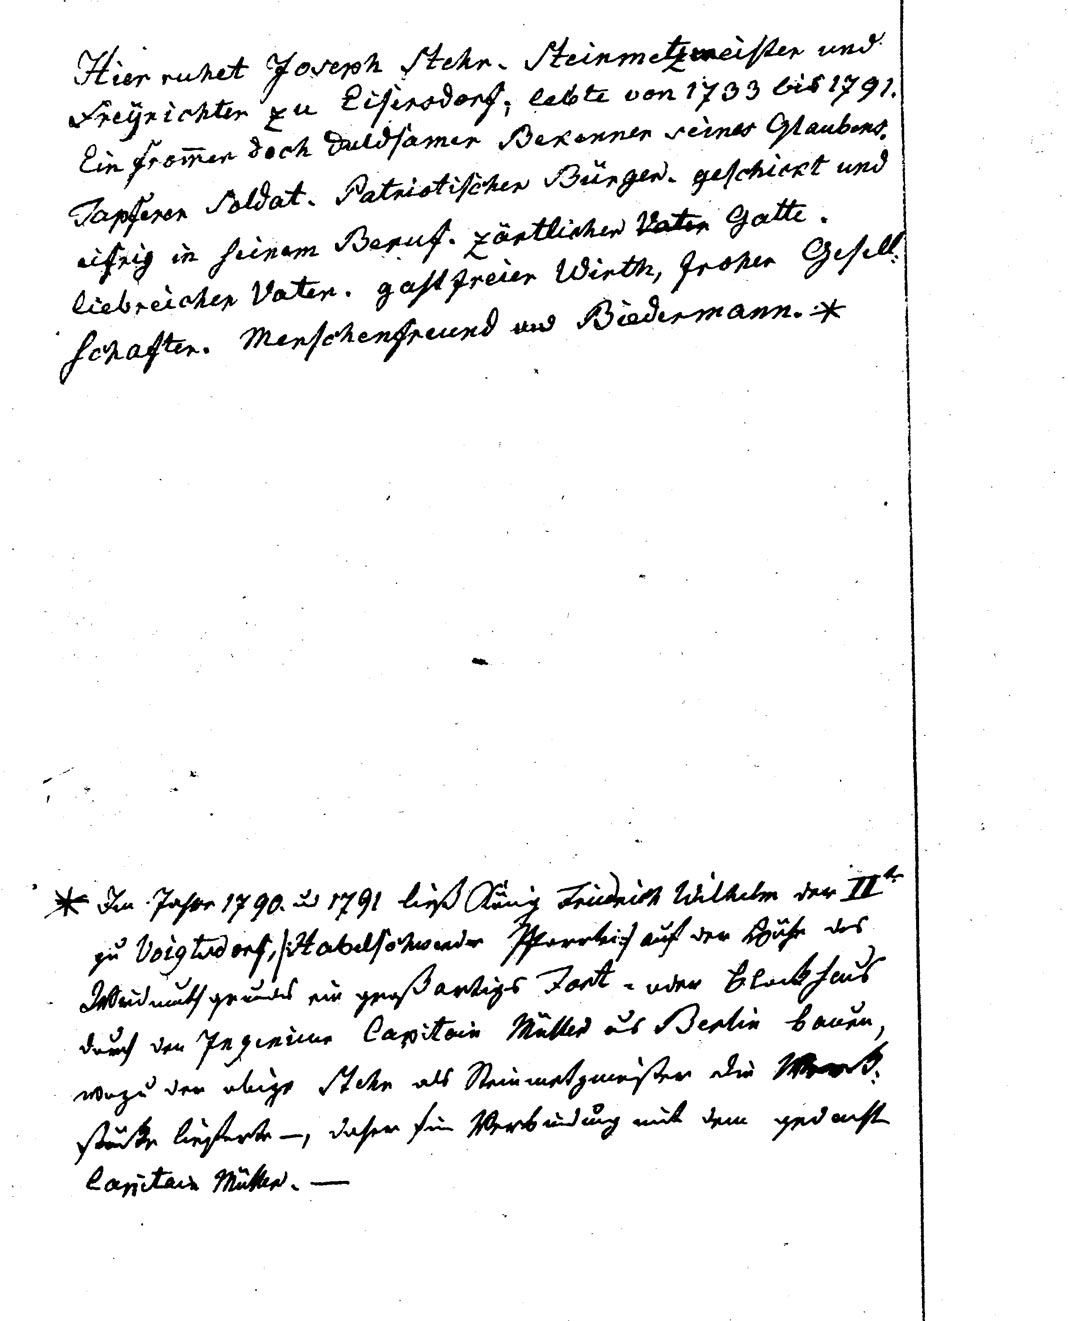 Hier ruhet Joseph Stehr. Steinmetzmeister und
Freÿrichter zu Eisersdorf, lebte von 1733 bis 1791.
Ein from̅er doch duldsamer Bekenner seines Glaubens.
Tapferer Soldat. Patriotischer Bürger. geschickt und
eifrig in seinem Beruf. zärtlicher Vater Gatte.
liebreicher Vater. gastfreier Wirth, froher Gesell:
schafter. Menschenfreund und Biedermann. *
* Im Jahre 1790. u 1791 ließ König Friedrich Wilhelm der II te
zu Voigtsdorf, /: Habelschwerdter Pfarrtei :/ auf der Höhe des
grundes ein großartiges Fort - oder Blockhaus
durch den Ingenieur Capitain Müller aus Berlin bauen,
wozu der obige Stehr als Steinmetzmeister die Werk:
stücke lieferte —, daher sein Verbindung mit dem gedacht
Capitain Müller. —